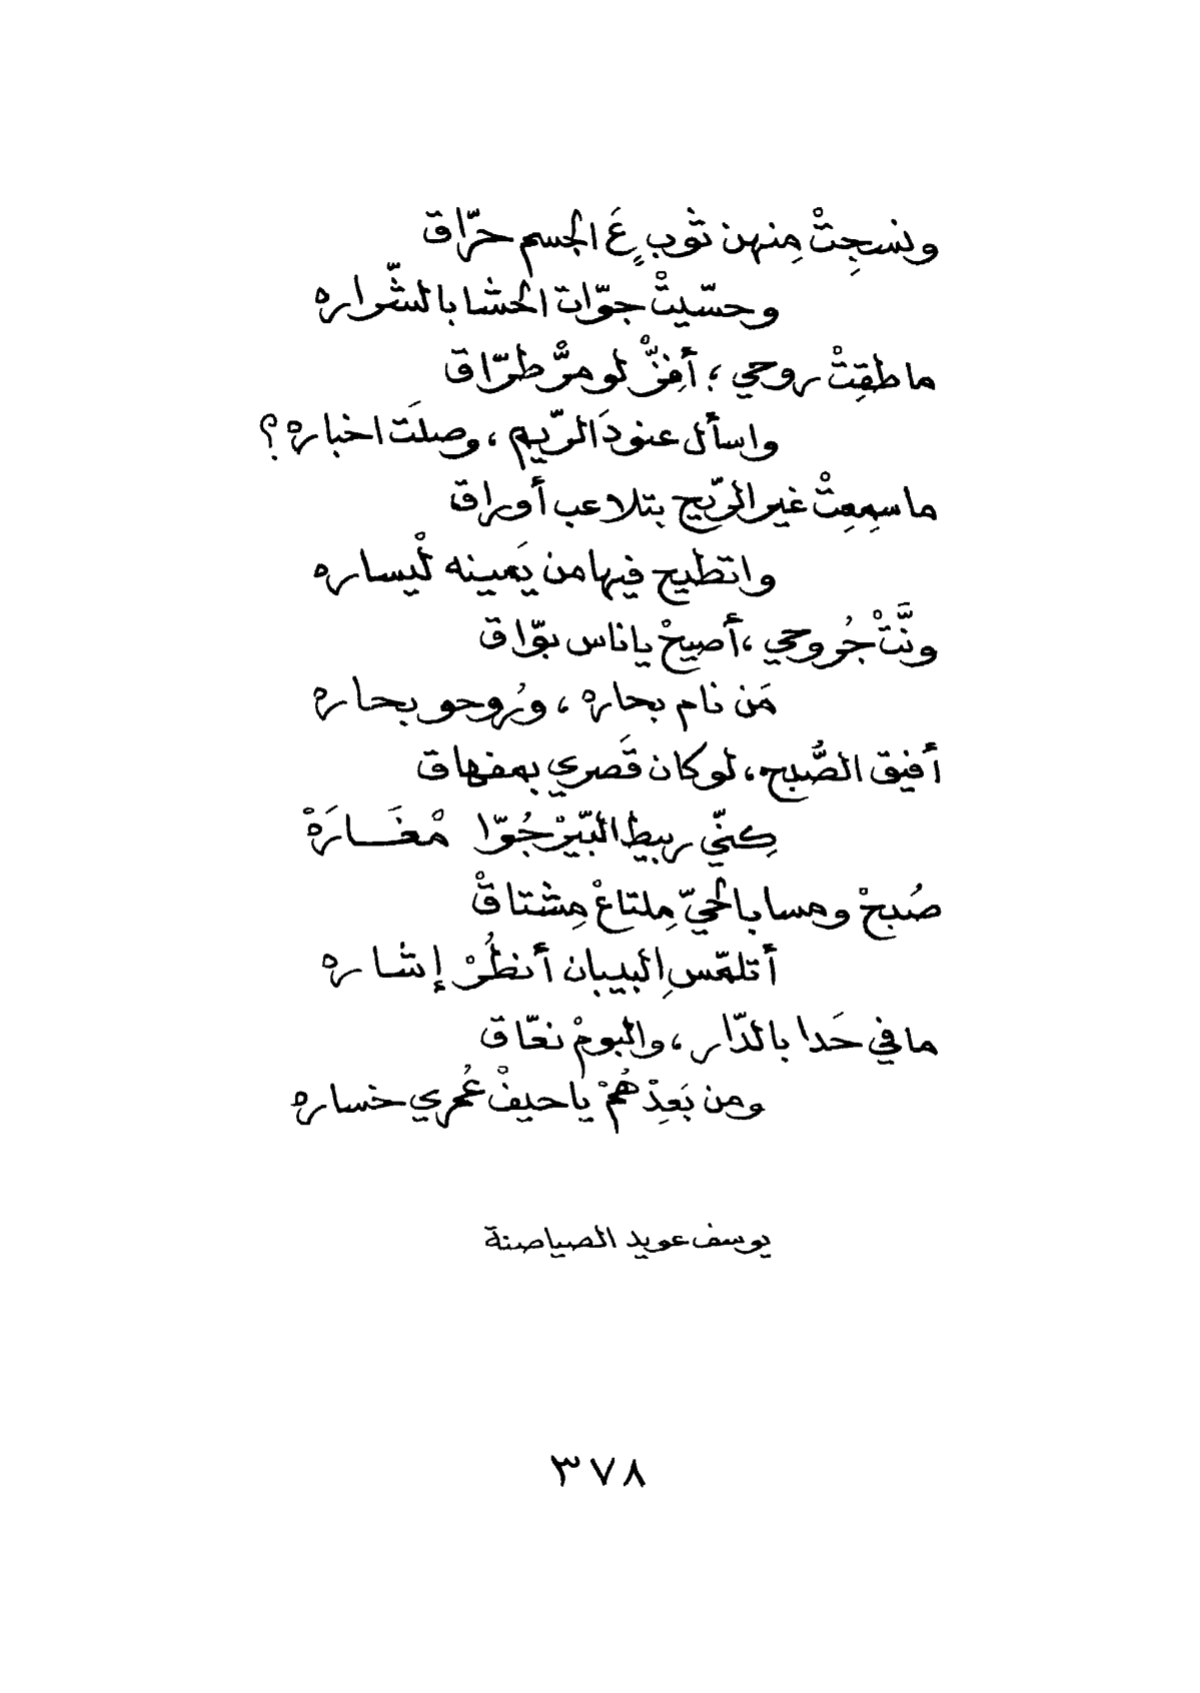 ونسجِتْ مِنهن ثوبٍ عَ الجسم حرّاق
وحسّيتْ جوّات الحشا بالشّراره
ما طقِتْ روحي ؛ أفِزّْ لو مرّْ طرّاق
واسأل عنودَ الرّيم ، وصلَت اخباره ؟
ما سمِعِتْ غير الرّيح بتلاعب أوراق
واتطيح فيها من يَمينه لْيساره
ونَّتْ جُروحي ، أصيحْ يا ناس بوّاق
مَن نام بحاره ، ورُوحو بحاره
أفيق الصُّبح ، لو كان قَصري بمفهاق
كِنّي ربيط البّيرْ جُوّا مْغَــارَهْ
صُبحْ ومسا بالحيّ مِلتاعْ مِشتاقْ
أتلمّسِ البيبان أنظُرْ إشاره
ما في حَدا بالدّار ، والبومْ نعّاق
ومن بَعِدْهُمْ يا حيفْ عُمري خساره
يوسف عويد الصياصنة
٣٧٨